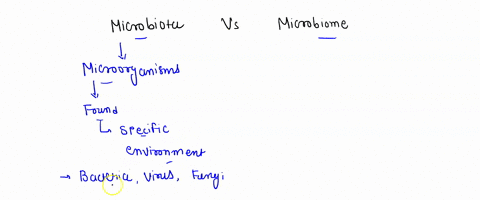 Microbiota Vs Microbiome
Microorganisms
Found
specific
environment
→ Bacteria, Virus, Fungi